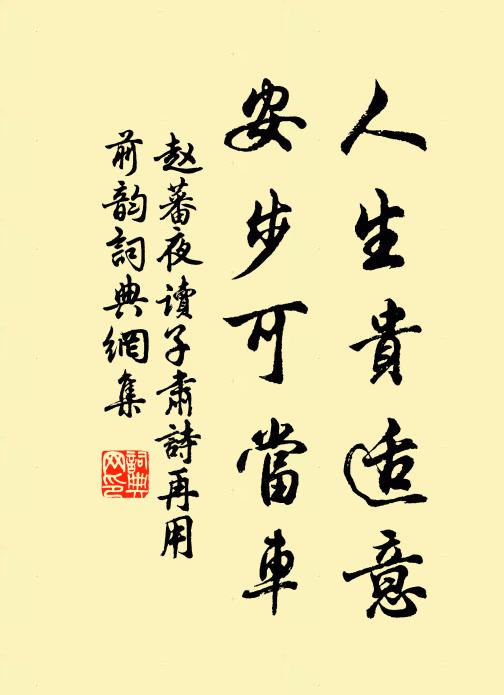 人生貴适意
安步可當車
赵蕃夜读子肅詩再用
前韵詞典網集
詞典
网印